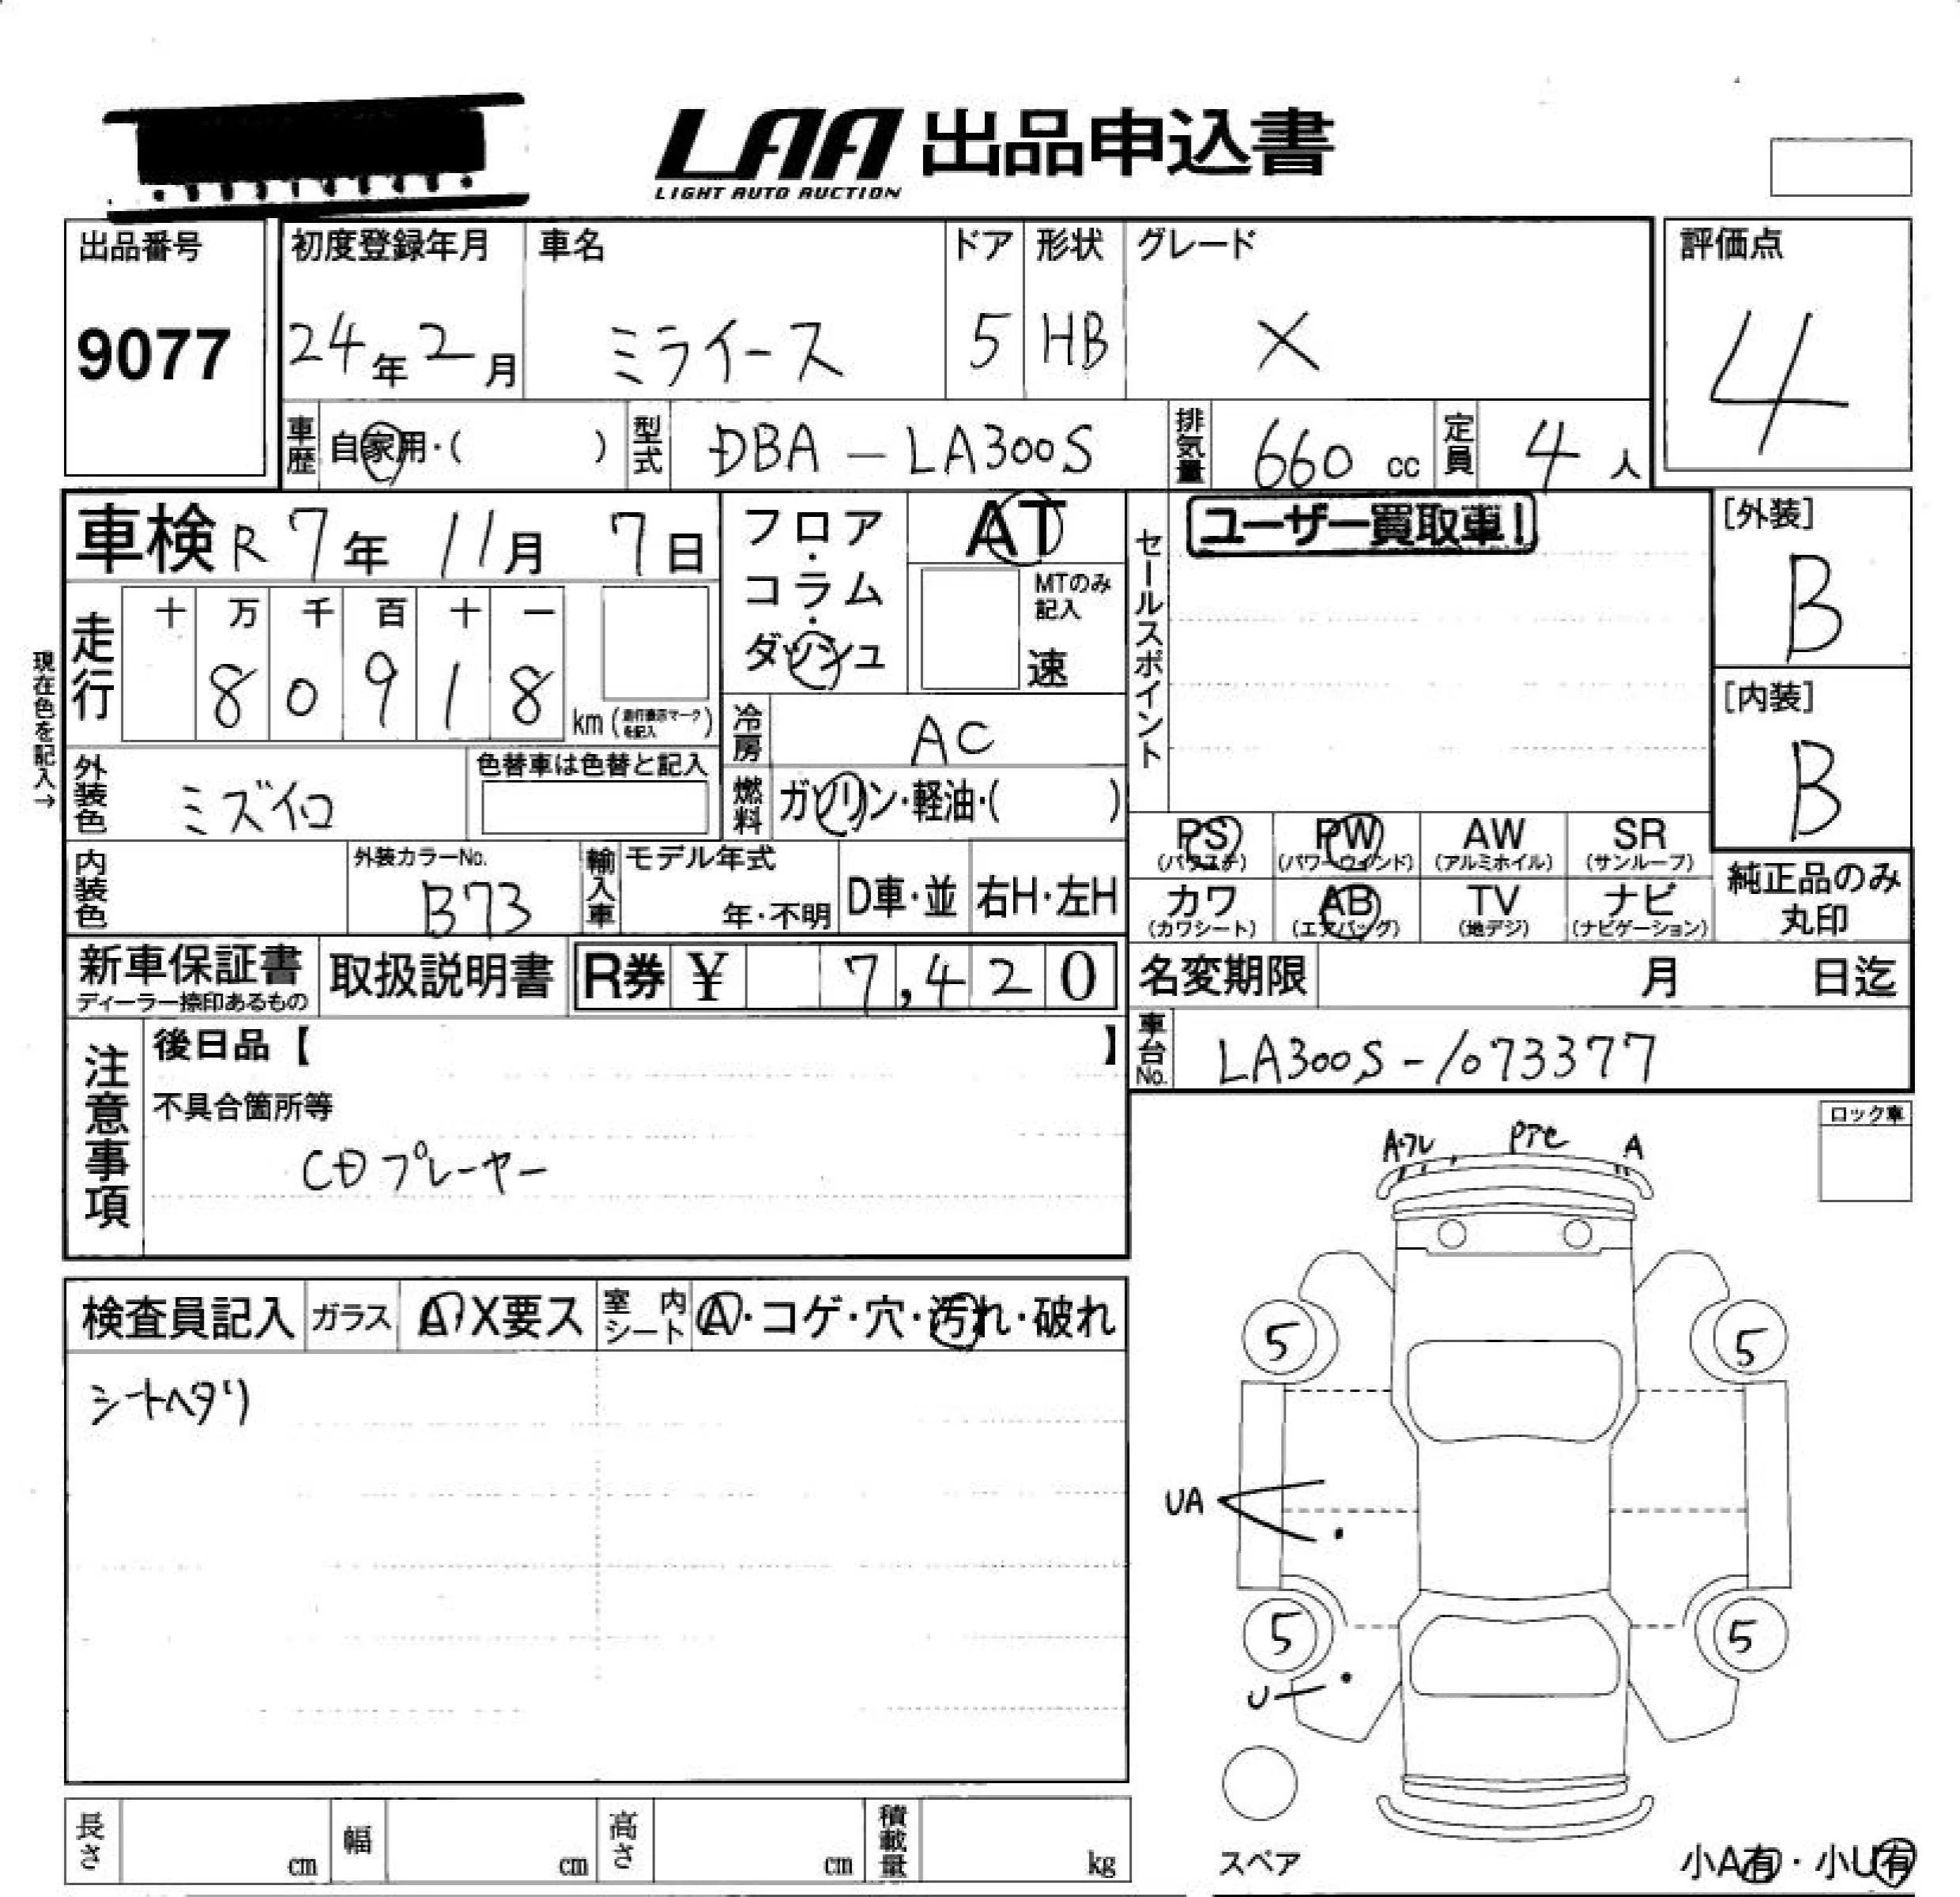 LAA 出品申込書
LIGHT AUTO AUCTION
出品番号
9077
初度登録年月
24年2月
車名
ミライース
ドア
5
形状
HB
グレード
X
評価点
4
車歴 自家用・( )
型式 DBA-LA300S
排気量 660cc
定員 4人
車検 R7年11月7日
フロア・コラム・ダッシュ
AT
MTのみ記入
速
セールスポイント
ユーザー買取車!
[外装]
B
[内装]
B
現在色を記入→
走行
十 万 千 百 十 一
8 0 9 1 8 km(走行表示マークを記入)
冷房 AC
外装色 ミズイロ
色替車は色替と記入
燃料 ガソリン・軽油・( )
PS (パワステ)
PW (パワーウィンド)
AW (アルミホイル)
SR (サンルーフ)
カワ (カワシート)
AB (エアバッグ)
TV (地デジ)
ナビ (ナビゲーション)
純正品のみ丸印
内装色
外装カラーNo.
B73
輸入車 モデル年式
年・不明
D車・並
右H・左H
新車保証書
ディーラー捺印あるもの
取扱説明書
R券 ¥ 7,420
名変期限 月 日迄
車台No. LA300S-1073377
注意事項
後日品【 】
不具合箇所等
CDプレーヤー
ロック車
A・フレ PTe A
検査員記入
ガラス A X要ス
室内シート A・コゲ・穴・汚れ・破れ
シートヘタリ
5 5
UA
5 5
U
スペア
小A有・小U有
長さ cm
幅 cm
高さ cm
積載量 kg